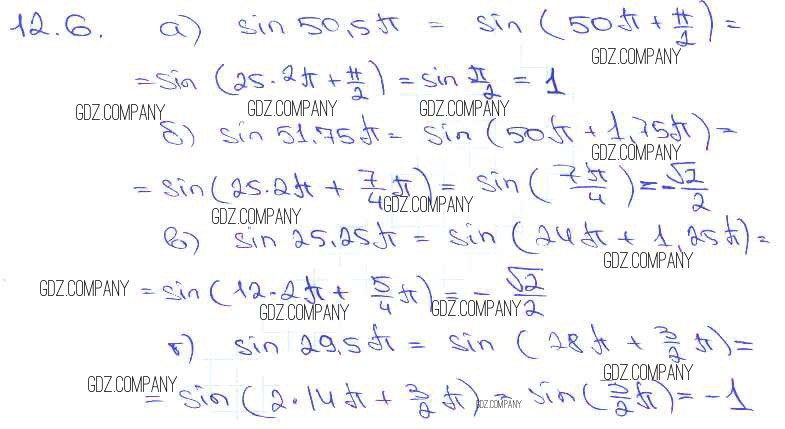 12.6. а) sin 50,5π = sin (50π + π/2) =
GDZ.COMPANY
= sin (25·2π + π/2) = sin π/2 = 1
GDZ.COMPANY GDZ.COMPANY GDZ.COMPANY
б) sin 51,75π = sin (50π + 1,75π) =
GDZ.COMPANY
= sin (25·2π + 7/4 π) = sin (7π/4) = -√2/2
GDZ.COMPANY GDZ.COMPANY
в) sin 25,25π = sin (24π + 1,25π) =
GDZ.COMPANY
GDZ.COMPANY = sin (12·2π + 5/4 π) = - √2/2
GDZ.COMPANY GDZ.COMPANY
г) sin 29,5π = sin (28π + 3/2 π) =
GDZ.COMPANY GDZ.COMPANY
= sin (2·14π + 3/2 π) = sin (3/2 π) = -1
GDZ.COMPANY